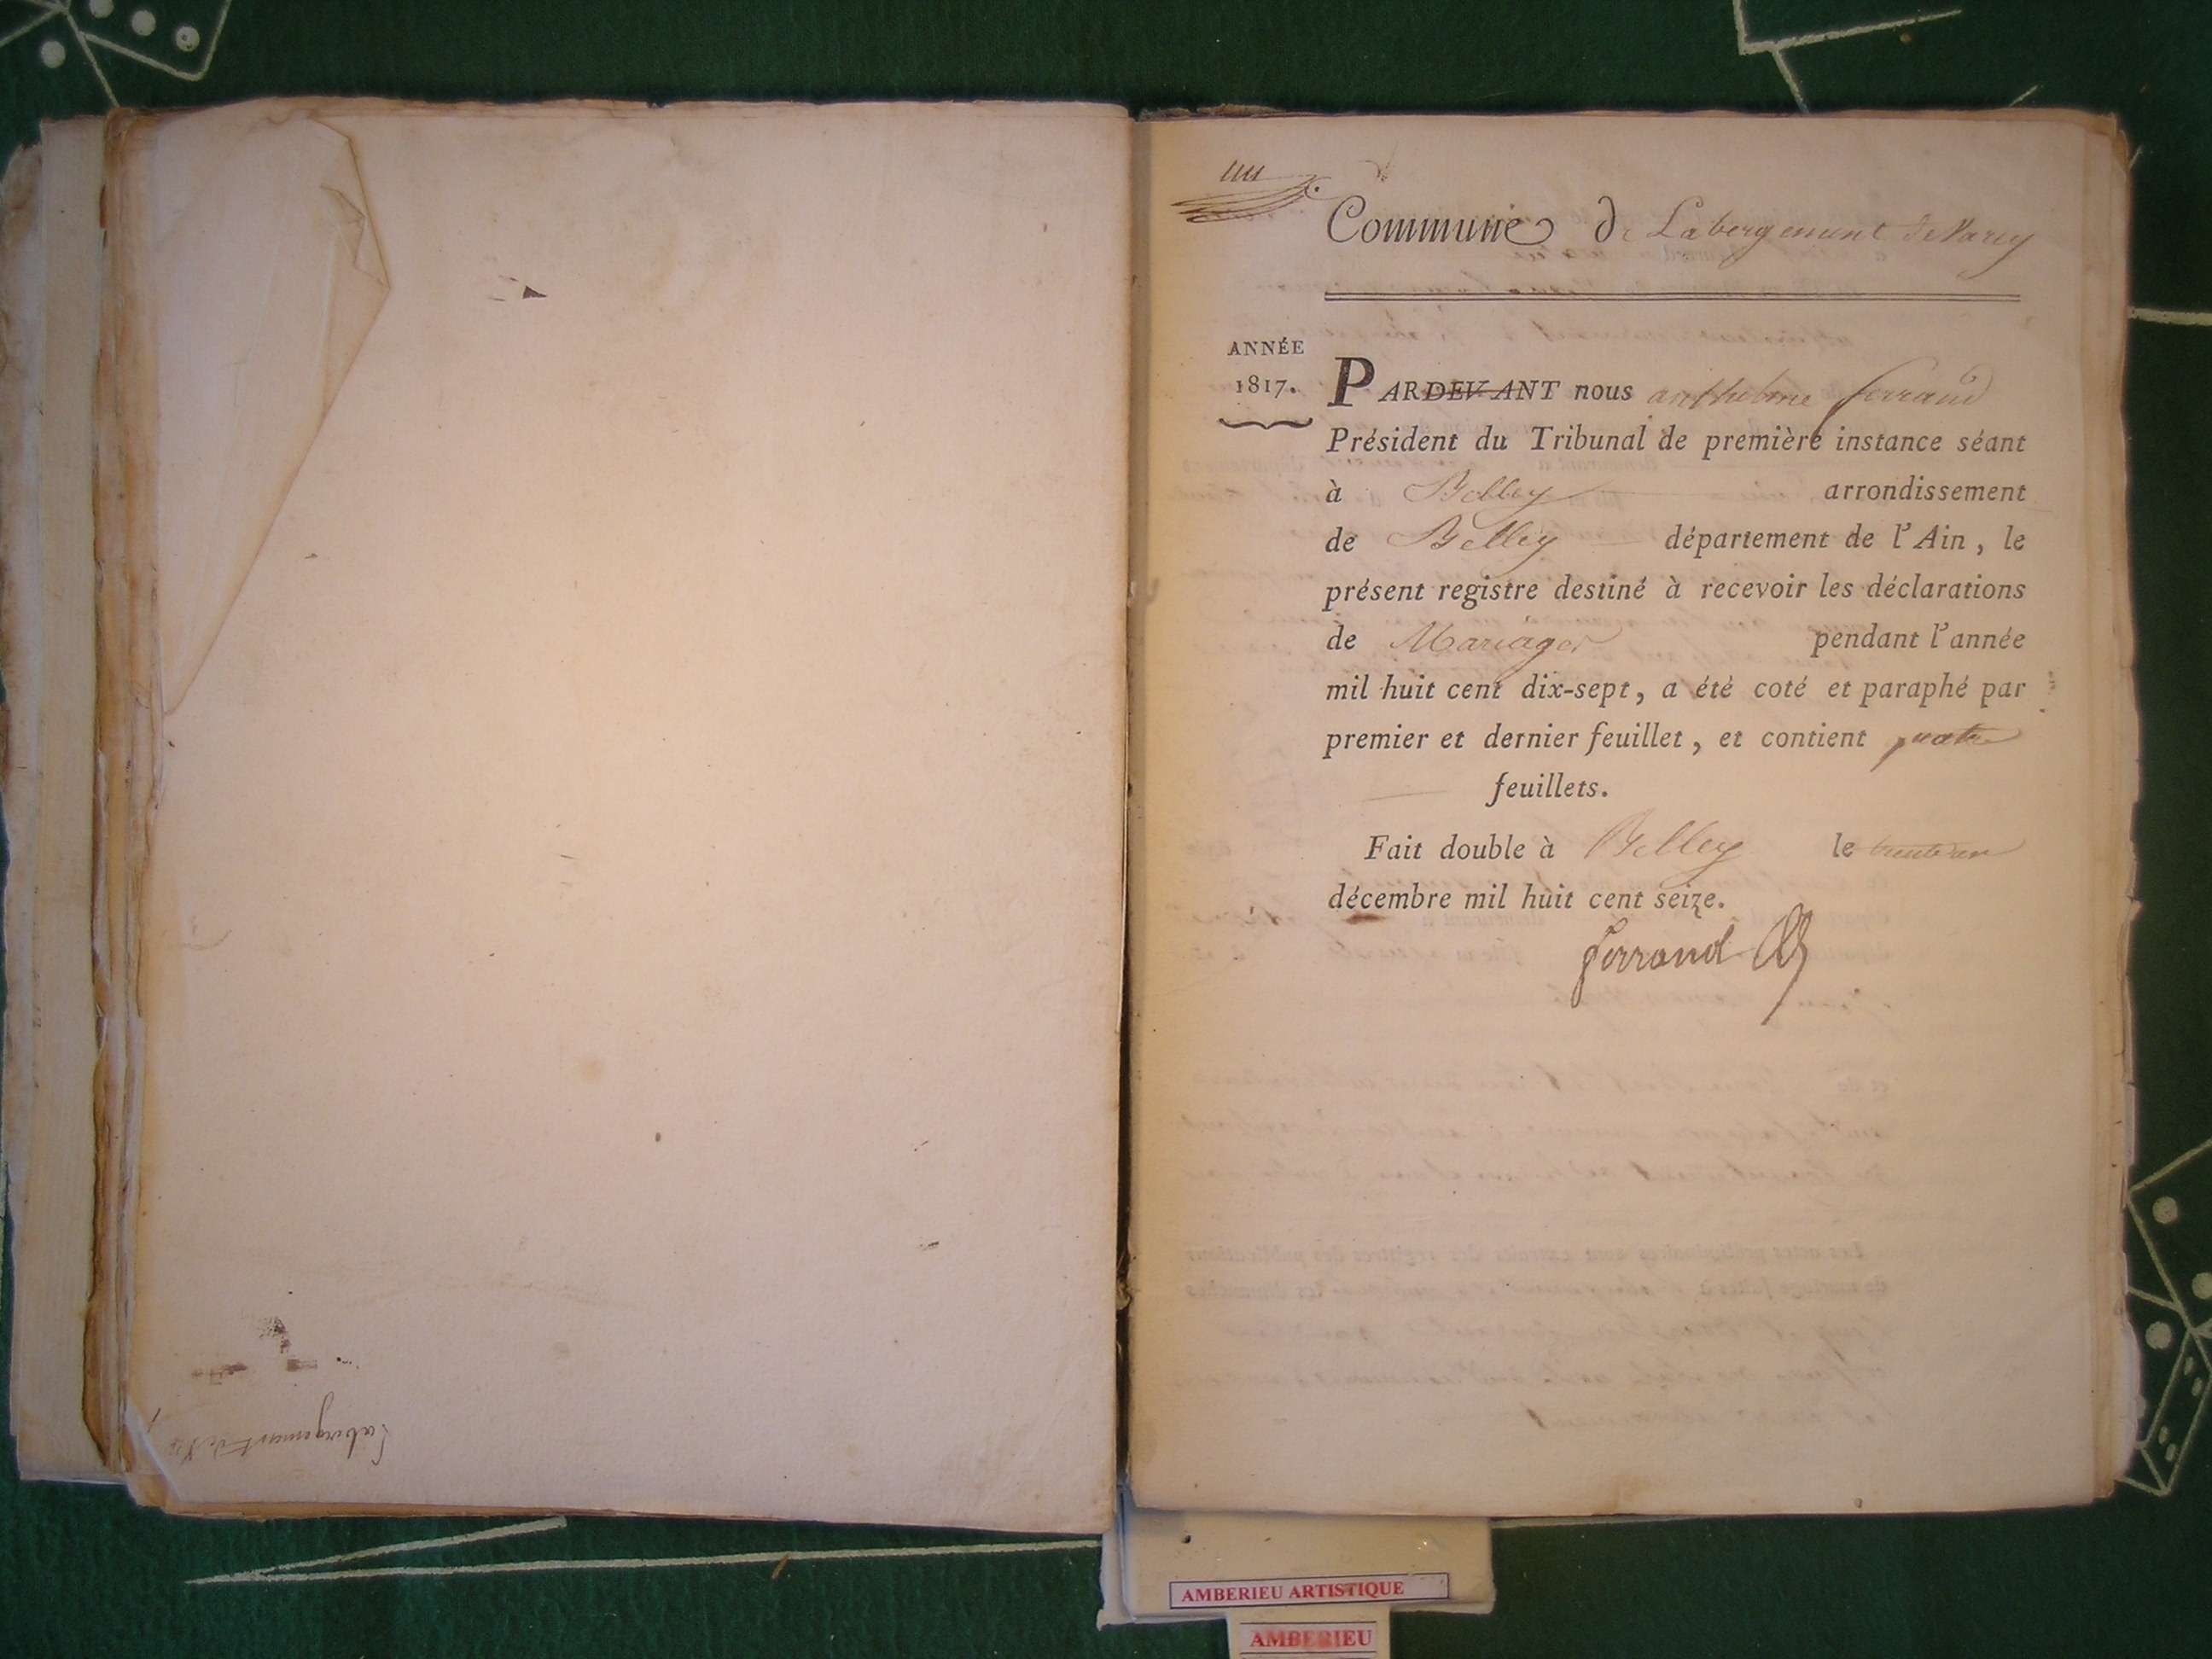 Commune de Labergement de Varey
ANNÉE
1817.
PARDEVANT nous anthelme ferrand
Président du Tribunal de première instance séant
à Belley arrondissement
de Belley département de l'Ain, le
présent registre destiné à recevoir les déclarations
de Mariages pendant l'année
mil huit cent dix-sept, a été coté et paraphé par
premier et dernier feuillet, et contient quatre
feuillets.
Fait double à Belley le trente un
décembre mil huit cent seize.
ferrand
Labergement de
AMBERIEU ARTISTIQUE
AMBERIEU